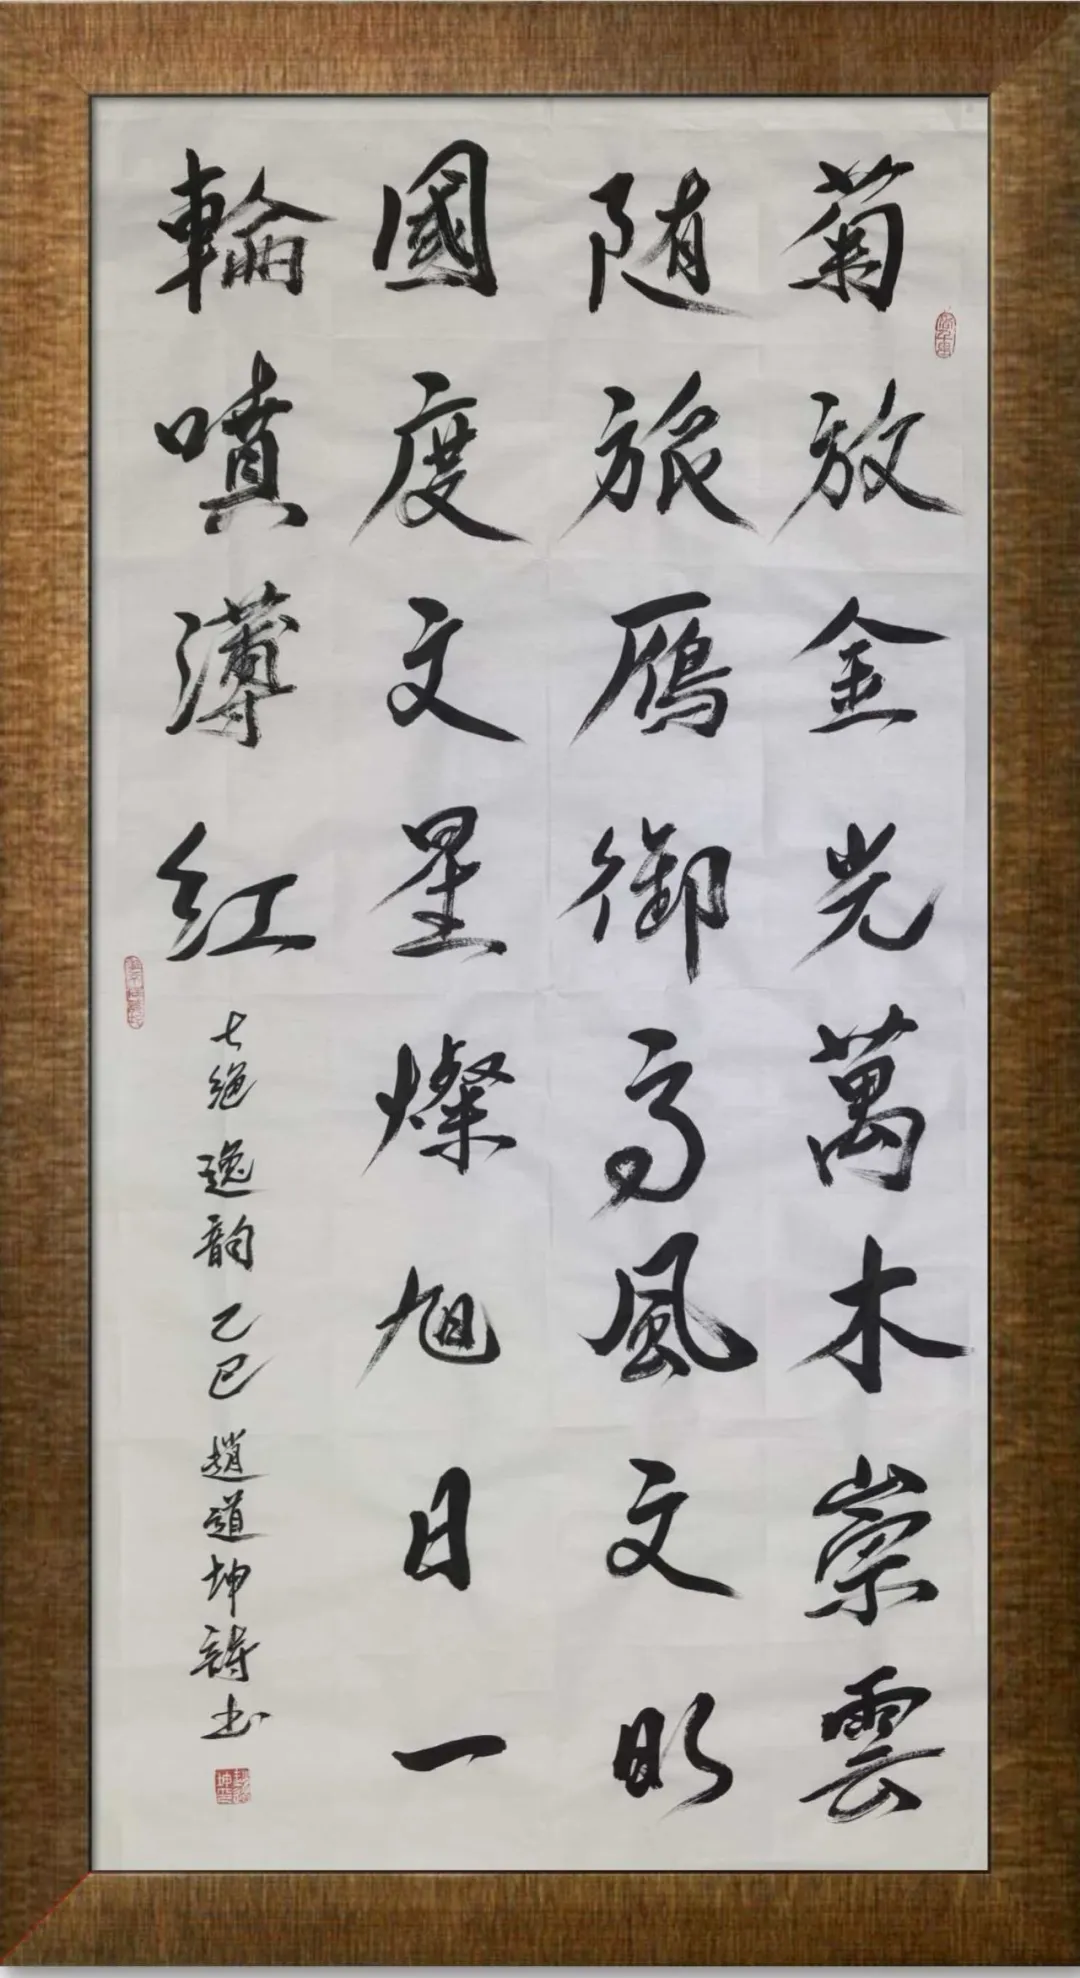 菊放金光萬木崇雲
随旅鴈御高風文明
國度文星燦旭日一
輪噴薄红
七絕 逸韵 乙巳 趙道坤詩书